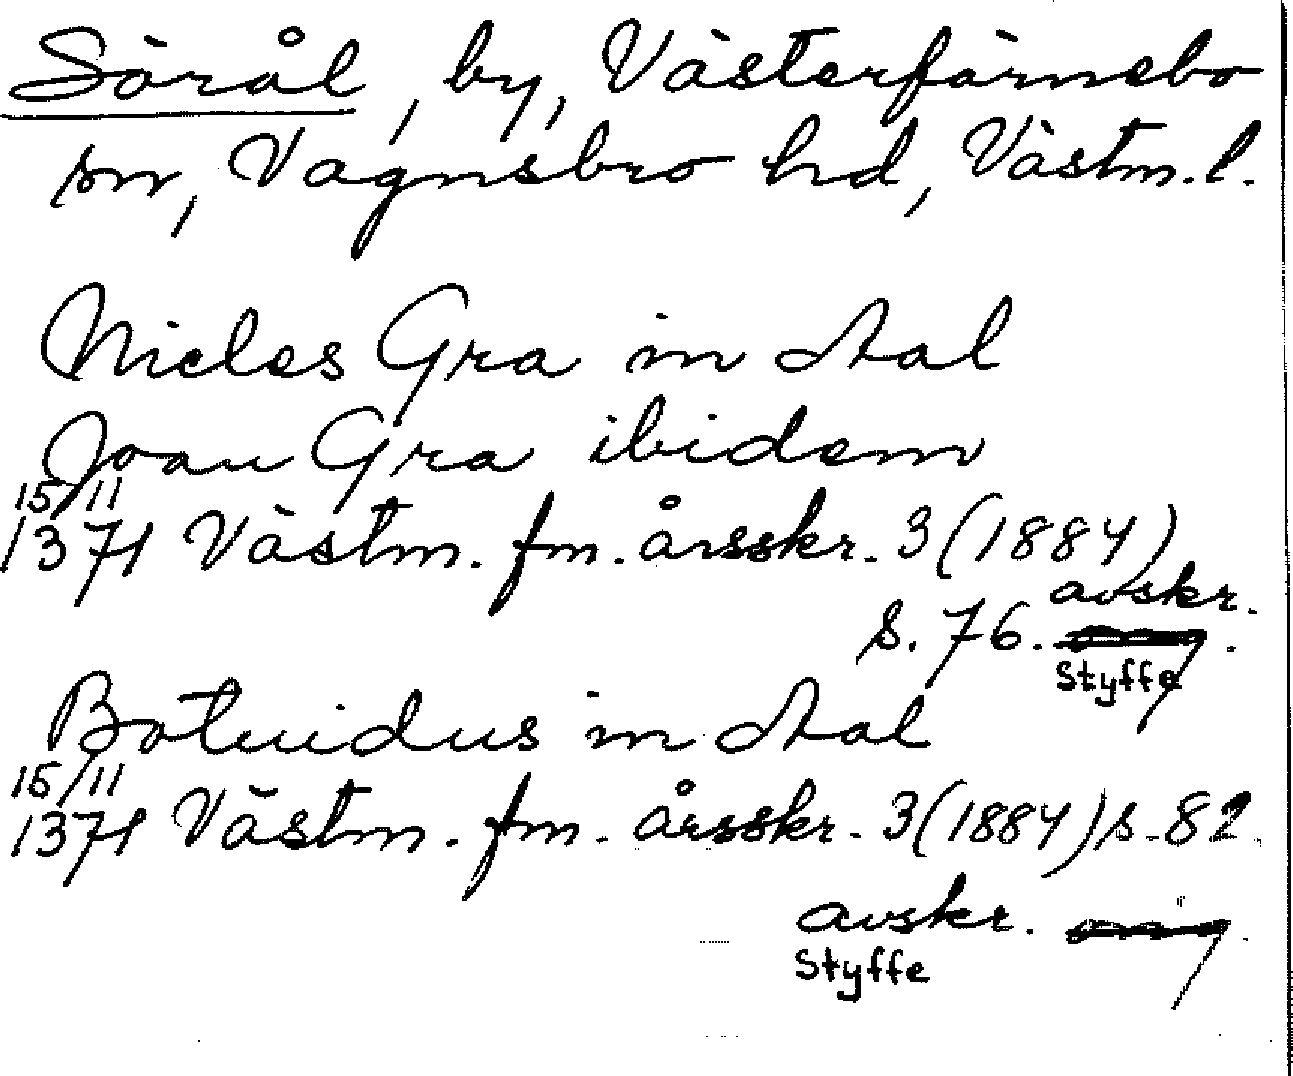 Söräl, by, Västerfärnebo
sn, Vagnsbro hd, Västm. l.
Nicles Gra in Aal
Joan Gra ibidem
15/11
1371 Västm. fm. årsskr. 3 (1884)
s. 76. avskr.
Styffe
Botuidus in Aal
15/11
1371 Västm. fm. årsskr. 3 (1884) s. 82.
avskr.
Styffe